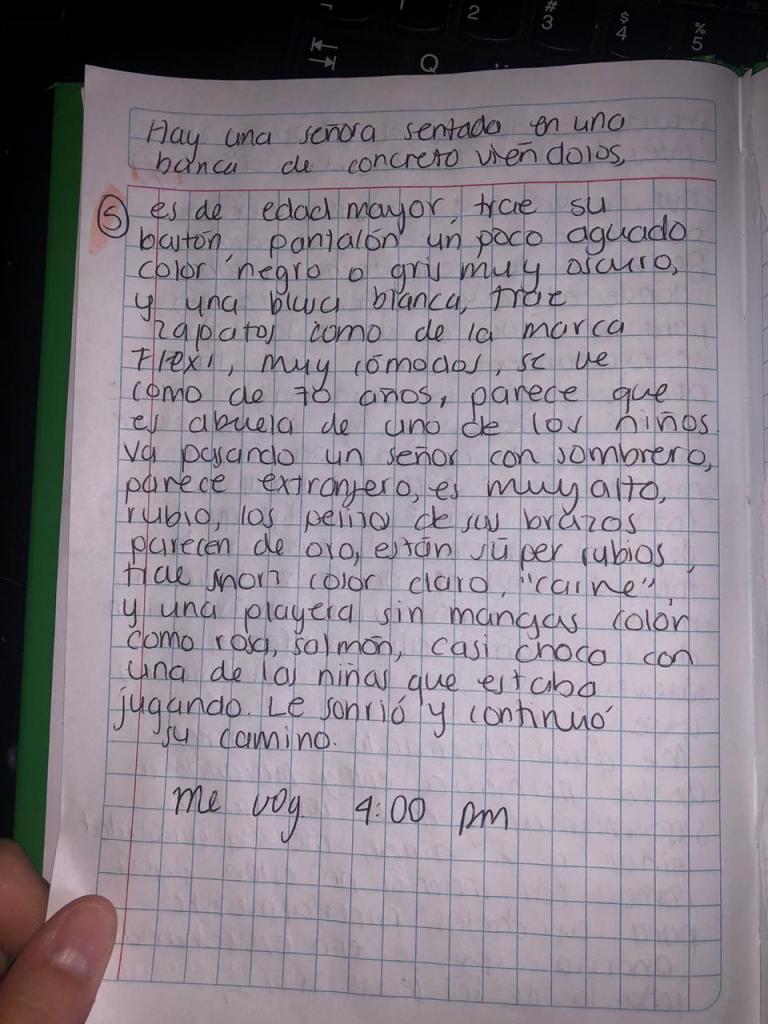 2
#
3
$
4
%
5
Q
Hay una señora sentada en una
banca de concreto vieñdolos,
5 es de edad mayor, trae su
bastón, pantalón un poco aguado
color negro o gris muy oscuro,
y una blusa blanca, trae
zapatos como de la marca
Flexi, muy cómodos, se ve
como de 70 años, parece que
es abuela de uno de los niños
va pasando un señor con sombrero,
parece extranjero, es muy alto,
rubio, los pelitos de sus brazos
parecen de oro, están súper rubios,
trae short color claro, "carne",
y una playera sin mangas color
como rosa, salmón, casi choca con
una de las niñas que estaba
jugando. Le sonrió y continuó
su camino.
me voy 4:00 pm